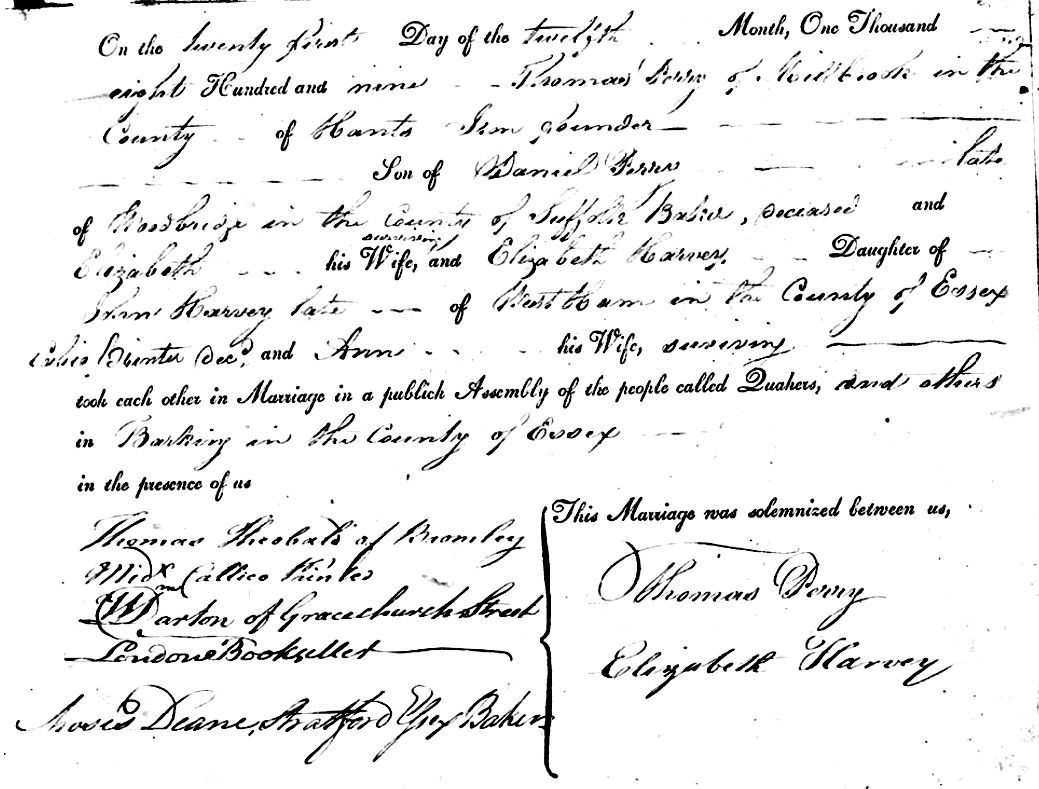 On the twenty first Day of the twelfth Month, One Thousand
eight Hundred and nine Thomas Perry of Millbrook in the
County of Hants Iron founder
Son of Daniel Perry late
of Woodbridge in the County of Suffolk Baker, deceased and
surviving
Elizabeth his Wife, and Elizabeth Harvey, Daughter of
John Harvey late of West Ham in the County of Essex
Calico Printer Decd, and Ann his Wife, surviving
took each other in Marriage in a publick Assembly of the people called Quakers, and others
in Barking in the County of Essex
in the presence of us
This Marriage was solemnized between us,
Thomas Theobald of Bromley
Midx Callico Printer
Wm Darton of Gracechurch Street
London Bookseller
Moses Deane, Stratford Essex Baker
Thomas Perry
Elizabeth Harvey